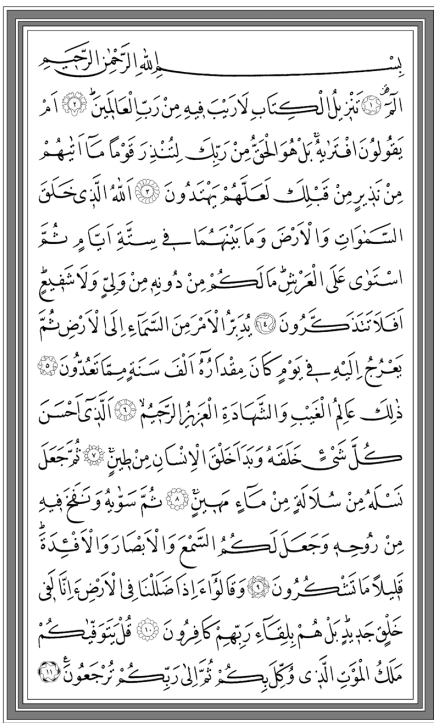 بِسْمِ اللهِ الرَّحْمٰنِ الرَّحِيمِ
الٓمٓ ۚ ﴿١﴾ تَنْزِيلُ الْكِتَابِ لَا رَيْبَ فِيهِ مِنْ رَبِّ الْعَالَمِينَ ۜ ﴿٢﴾ اَمْ
يَقُولُونَ افْتَرٰيهُ ۚ بَلْ هُوَ الْحَقُّ مِنْ رَبِّكَ لِتُنْذِرَ قَوْمًا مَٓا اَتٰيهُمْ
مِنْ نَذِيرٍ مِنْ قَبْلِكَ لَعَلَّهُمْ يَهْتَدُونَ ﴿٣﴾ اَللّٰهُ الَّذِي خَلَقَ
السَّمٰوَاتِ وَالْاَرْضَ وَمَا بَيْنَهُمَا فِي سِتَّةِ اَيَّامٍ ثُمَّ
اسْتَوٰى عَلَى الْعَرْشِ ۜ مَا لَكُمْ مِنْ دُونِهِ مِنْ وَلِيٍّ وَلَا شَفِيعٍ ۜ
اَفَلَا تَتَذَكَّرُونَ ﴿٤﴾ يُدَبِّرُ الْاَمْرَ مِنَ السَّمَٓاءِ اِلَى الْاَرْضِ ثُمَّ
يَعْرُجُ اِلَيْهِ فِي يَوْمٍ كَانَ مِقْدَارُهُٓ اَلْفَ سَنَةٍ مِمَّا تَعُدُّونَ ﴿٥﴾
ذٰلِكَ عَالِمُ الْغَيْبِ وَالشَّهَادَةِ الْعَزِيزُ الرَّحِيمُ ۙ ﴿٦﴾ اَلَّذِٓي اَحْسَنَ
كُلَّ شَيْءٍ خَلَقَهُ وَبَدَاَ خَلْقَ الْاِنْسَانِ مِنْ طِينٍ ۚ ﴿٧﴾ ثُمَّ جَعَلَ
نَسْلَهُ مِنْ سُلَالَةٍ مِنْ مَٓاءٍ مَهِينٍ ۚ ﴿٨﴾ ثُمَّ سَوّٰيهُ وَنَفَخَ فِيهِ
مِنْ رُوحِهِ وَجَعَلَ لَكُمُ السَّمْعَ وَالْاَبْصَارَ وَالْاَفْـِٔدَةَ ۜ
قَلِيلًا مَا تَشْكُرُونَ ﴿٩﴾ وَقَالُٓوا ءَاِذَا ضَلَلْنَا فِي الْاَرْضِ ءَاِنَّا لَفِي
خَلْقٍ جَدِيدٍ ۜ بَلْ هُمْ بِلِقَٓاءِ رَبِّهِمْ كَافِرُونَ ﴿١٠﴾ قُلْ يَتَوَفّٰيكُمْ
مَلَكُ الْمَوْتِ الَّذِي وُكِّلَ بِكُمْ ثُمَّ اِلٰى رَبِّكُمْ تُرْجَعُونَ ۟ ﴿١١﴾